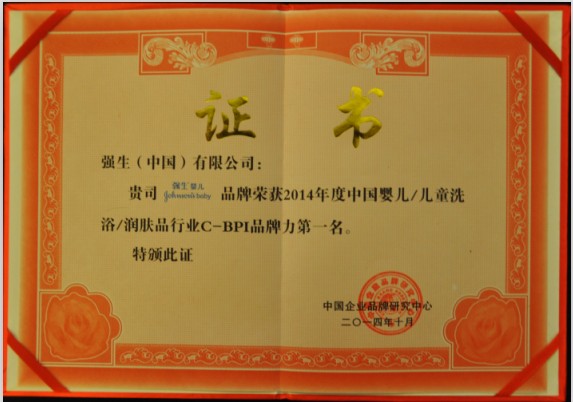 证 书
强生（中国）有限公司：
贵司 强生婴儿 Johnson's baby 品牌荣获2014年度中国婴儿/儿童洗
浴/润肤品行业C-BPI品牌力第一名。
特颁此证
中国企业品牌研究中心
二〇一四年十月